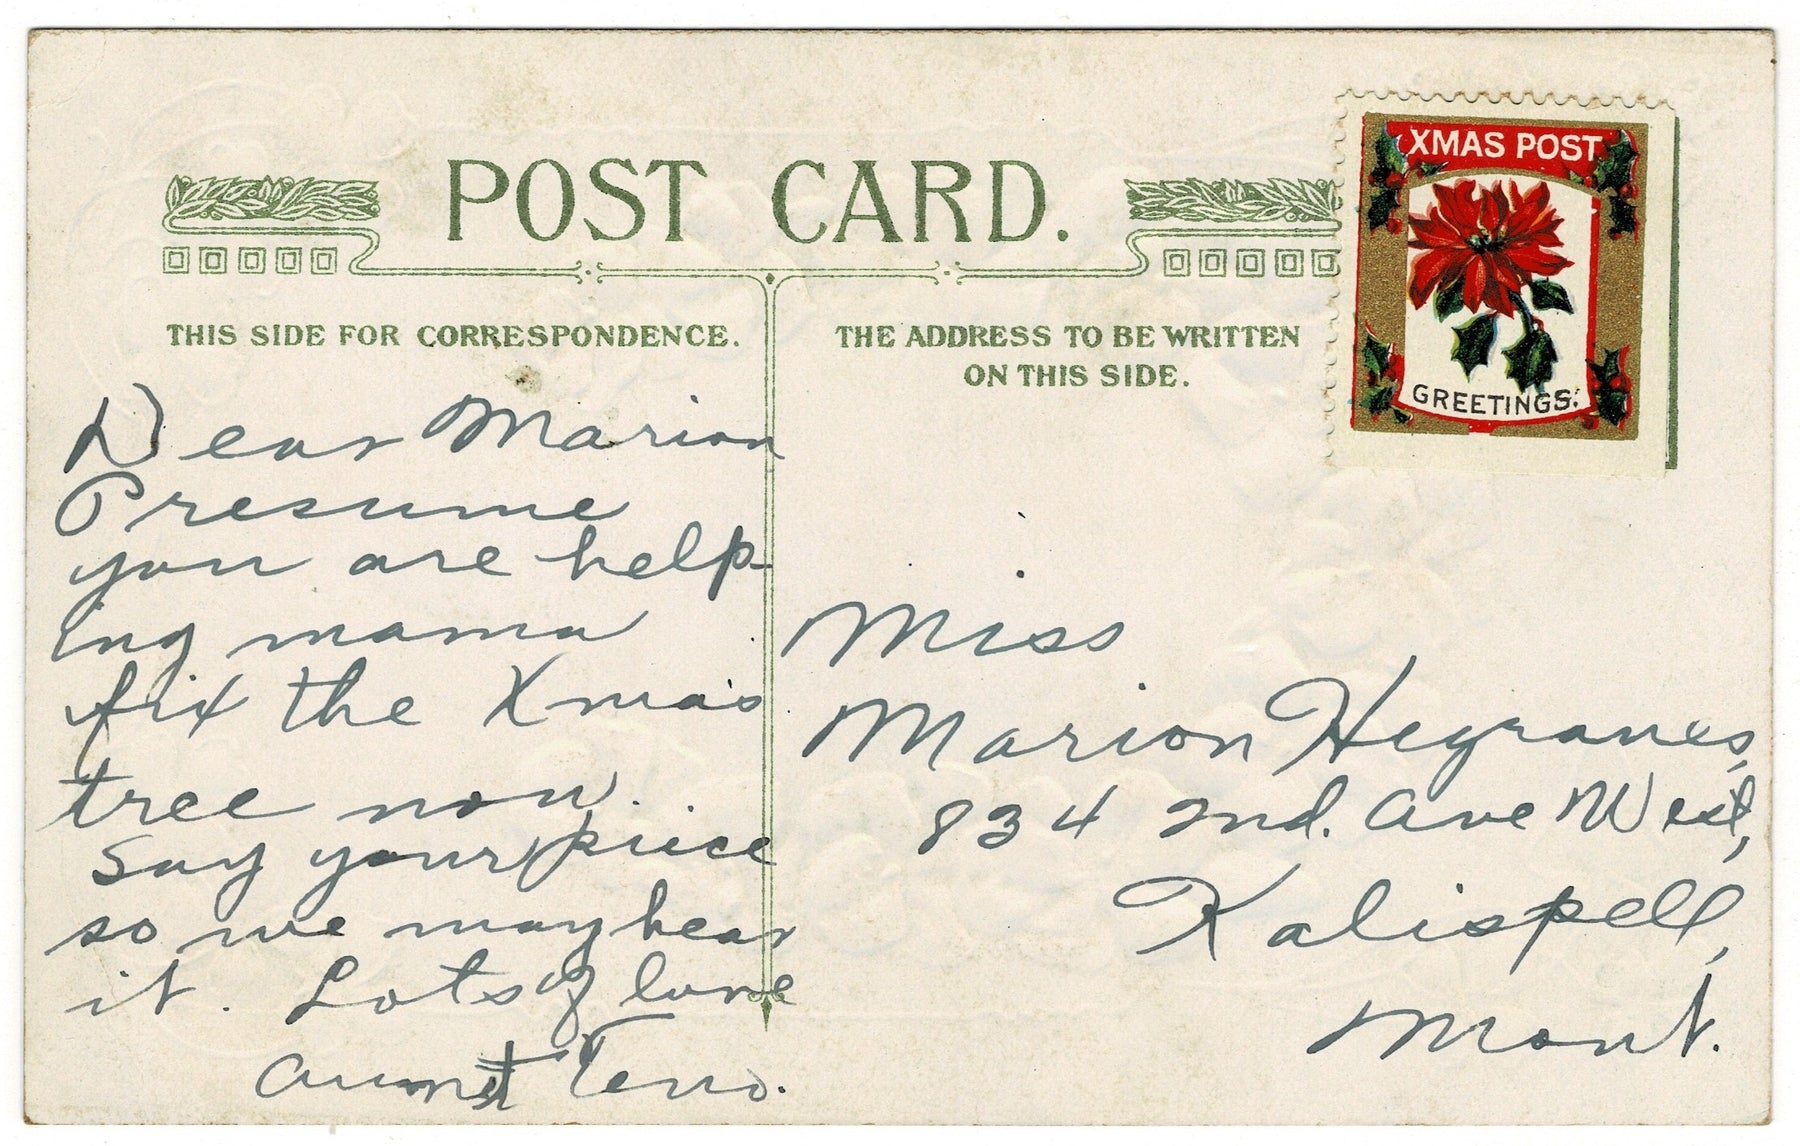 POST CARD.
XMAS POST
GREETINGS.
THIS SIDE FOR CORRESPONDENCE.
THE ADDRESS TO BE WRITTEN
ON THIS SIDE.
Dear Marion
Presume
you are help-
ing mama
fix the Xmas
tree now.
Say your piece
so we may hear
it. Lots of love
Aunt
Miss
Marion Hegranes,
834 2nd. Ave West,
Kalispell,
Mont.